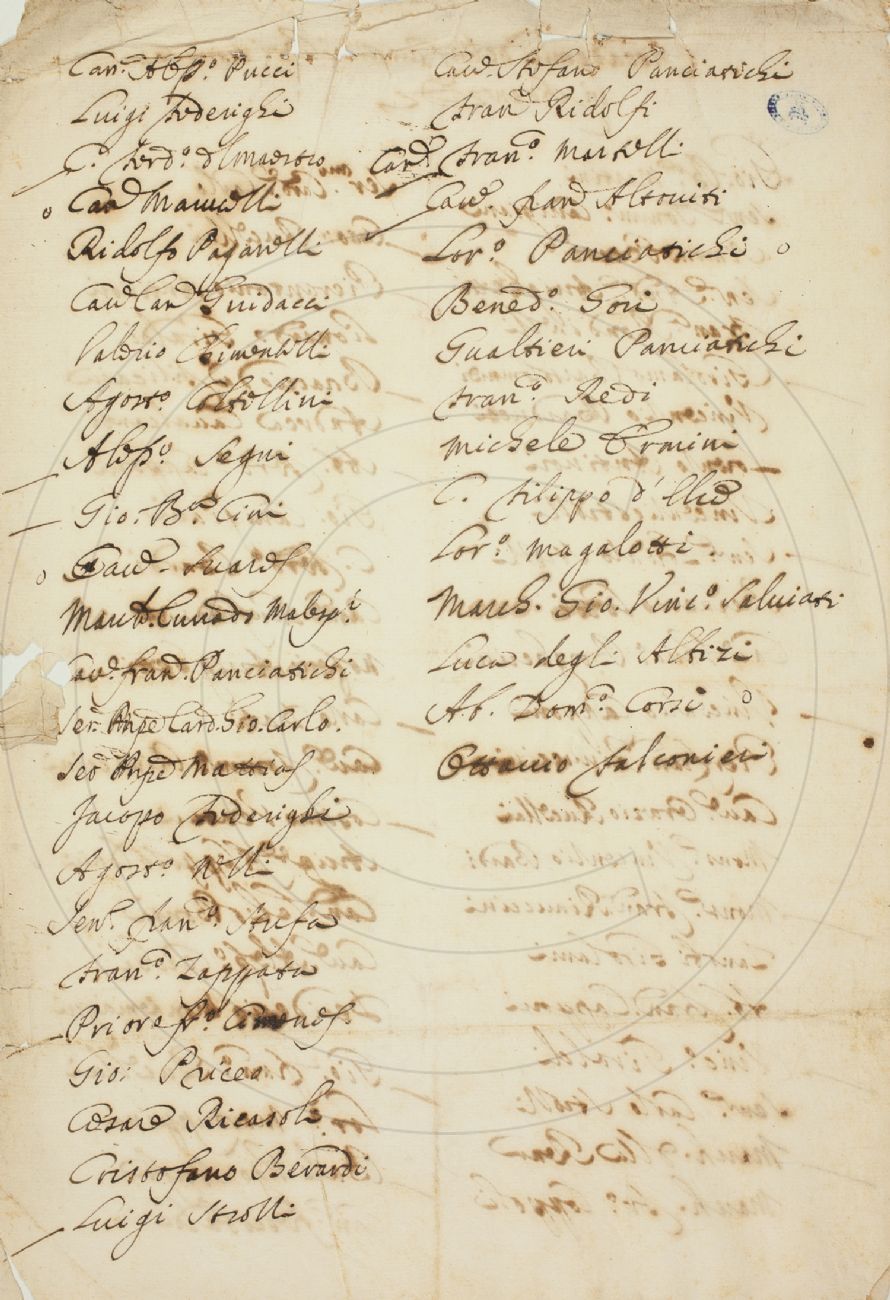 Can.ᶜ Aless.º Pucci
Luigi Federighi
C.º Ferd.º d'l maestro
Cav.ᵉ Mainelli
Ridolfo Paganelli
Cav.ᵉ Guidacci
Valerio Chimentelli
Agost.º Coltellini
Aless.º Segni
Gio: B.ª Cini
Cav.ᵉ Suares
March. Currado Malesp.ⁱ
Cav.ᵉ Fran.º Panciatichi
Ser.ᵐᵒ Pnpe Card. Gio. Carlo.
Ser.ᵐᵒ Pnpe Mattias
Jacopo Federighi
Agost.º Nelli
Sen.ʳ Fran.º Stufa
Fran.º Zappata
Priore Fr.º Cimenes
Gio: Priceo
Cesare Ricasoli
Cristofano Berardi
Luigi Strozzi
Cav.ᵉ Stefano Panciatichi
Fran.º Ridolfi
Cav.ᵉ Fran.º Martelli
Cav.ᵉ Fran.º Altoviti
Lor.º Panciatichi
Bened.º Gori
Gualtieri Panciatichi
Fran.º Redi
Michele Ermini
C. Filippo d'Elci
Lor.º Magalotti.
March. Gio. Vinc.º Salviati
Luca degli Albizi
Ab. Dom.º Corsi
Ottavio Falconieri